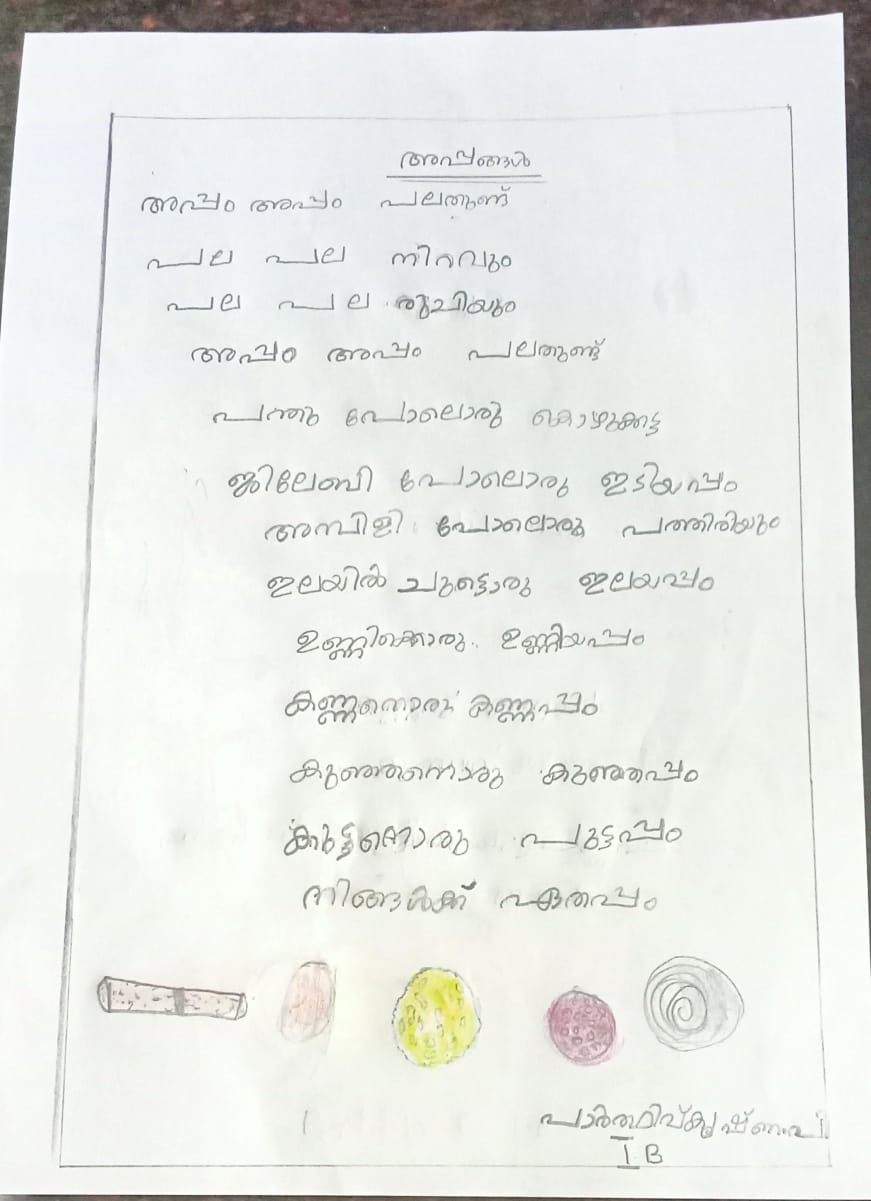 അപ്പങ്ങൾ
അപ്പം അപ്പം പലതുണ്ട്
പല പല നിറവും
പല പല രുചിയും
അപ്പം അപ്പം പലതുണ്ട്
പന്തു പോലൊരു കൊഴുക്കട്ട
ജിലേബി പോലൊരു ഇടിയപ്പം
അമ്പിളി പോലൊരു പത്തിരിയും
ഇലയിൽ ചുട്ടൊരു ഇലയപ്പം
ഉണ്ണിക്കൊരു ഉണ്ണിയപ്പം
കണ്ണനൊരു കണ്ണപ്പം
കുഞ്ഞനൊരു കുഞ്ഞപ്പം
കുട്ടനൊരു പുട്ടപ്പം
നിങ്ങൾക്ക് ഏതപ്പം
പാർത്ഥിവ്കൃഷ്ണ.പി
I B